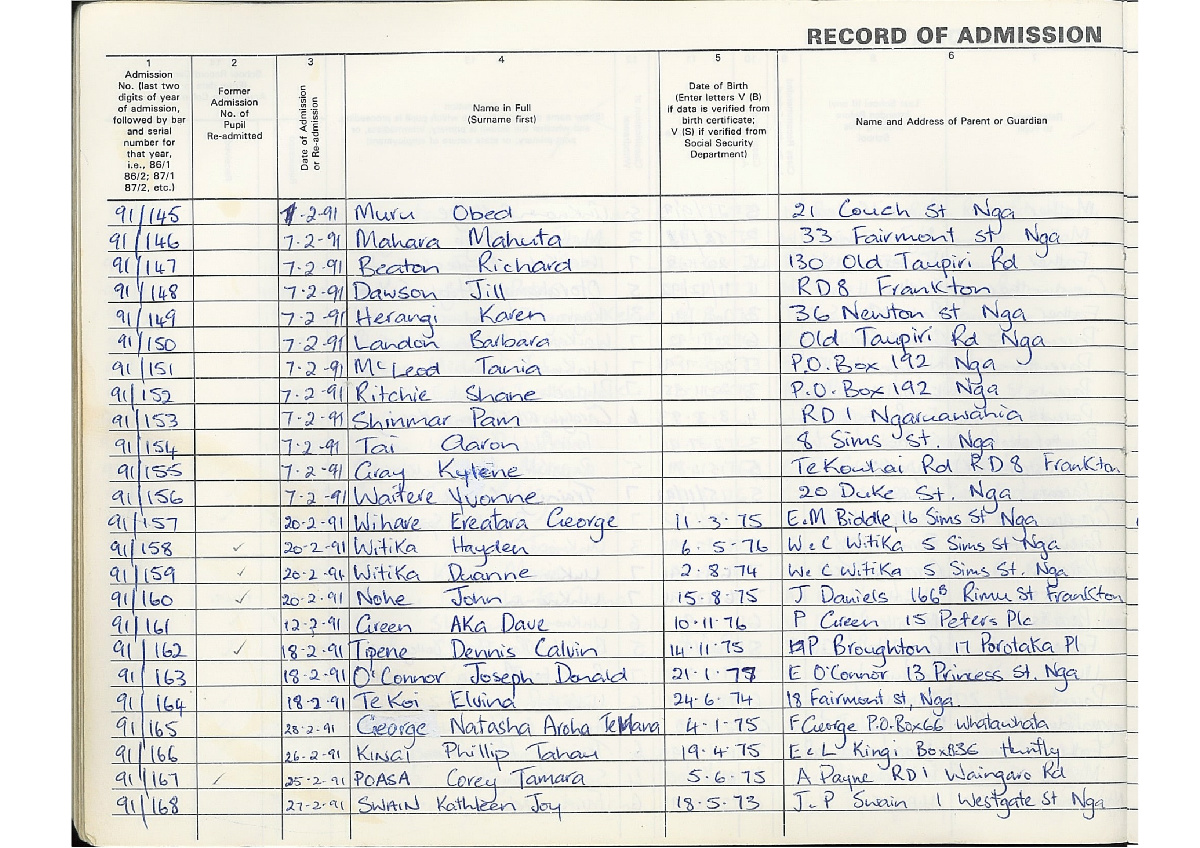 RECORD OF ADMISSION
1 2 3 4 5 6
Admission No. (last two digits of year of admission, followed by bar and serial number for that year, i.e., 86/1 86/2; 87/1 87/2, etc.)
Former Admission No. of Pupil Re-admitted
Date of Admission or Re-admission
Name in Full (Surname first)
Date of Birth (Enter letters V (B) if data is verified from birth certificate; V (S) if verified from Social Security Department)
Name and Address of Parent or Guardian
91/145 7-2-91 Muru Obed 21 Couch St Nga
91/146 7-2-91 Mahara Mahuta 33 Fairmont St Nga
91/147 7-2-91 Beaton Richard 130 Old Taupiri Rd
91/148 7-2-91 Dawson Jill RD8 Frankton
91/149 7-2-91 Herangi Karen 36 Newton St Nga
91/150 7-2-91 Landon Barbara Old Taupiri Rd Nga
91/151 7-2-91 McLeod Tania P.O. Box 192 Nga
91/152 7-2-91 Ritchie Shane P.O. Box 192 Nga
91/153 7-2-91 Shinmar Pam RD 1 Ngaruawahia
91/154 7-2-91 Tai Aaron 8 Sims St. Nga
91/155 7-2-91 Gray Kylene Te Kowhai Rd RD8 Frankton
91/156 7-2-91 Waitere Yvonne 20 Duke St. Nga
91/157 20-2-91 Wihare Ereatara George 11-3-75 E.M Biddle 16 Sims St Nga
91/158 ✓ 20-2-91 Witika Hayden 6-5-76 W & C Witika 5 Sims St Nga
91/159 ✓ 20-2-91 Witika Duanne 2-8-74 W & C Witika 5 Sims St. Nga
91/160 ✓ 20-2-91 Nohe John 15-8-75 J Daniels 166B Rimu St Frankton
91/161 12-2-91 Green AKA Dave 10-11-76 P Green 15 Peters Plc
91/162 ✓ 18-2-91 Tipene Dennis Calvin 14-11-75 P Broughton 17 Porotaka Pl
91/163 18-2-91 O'Connor Joseph Donald 21-1-77 E O'Connor 13 Princess St. Nga
91/164 18-2-91 Te Koi Elvina 24-6-74 18 Fairmont St, Nga.
91/165 28-2-91 George Natasha Aroha TeMana 4-1-75 F George P.O. Box 66 Whatawhata
91/166 26-2-91 KINGI Phillip Tahau 19-4-75 E & L Kingi Box 836 Huntly
91/167 ✓ 25-2-91 POASA Corey Tamara 5-6-75 A Payne RD1 Waingaro Rd
91/168 27-2-91 SWAIN Kathleen Joy 18-5-73 J.P Swain 1 Westgate St Nga